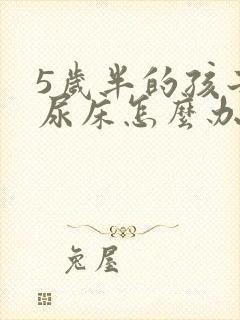 5歲半的孩子
尿床怎麼办
兔屋